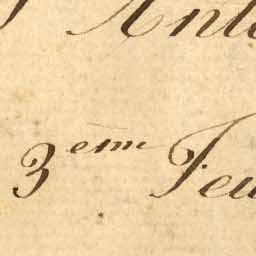 Ant
3eme Feu